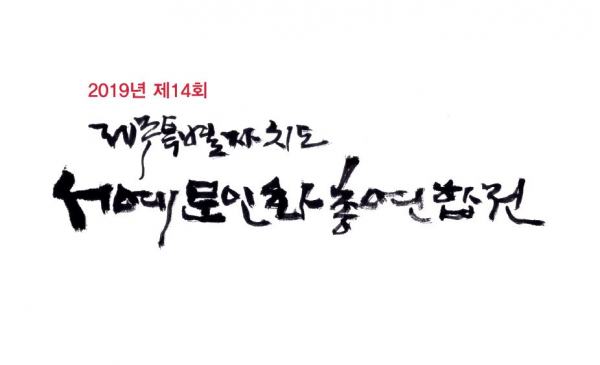 2019년 제14회
제주특별자치도
서예문인화총연합전